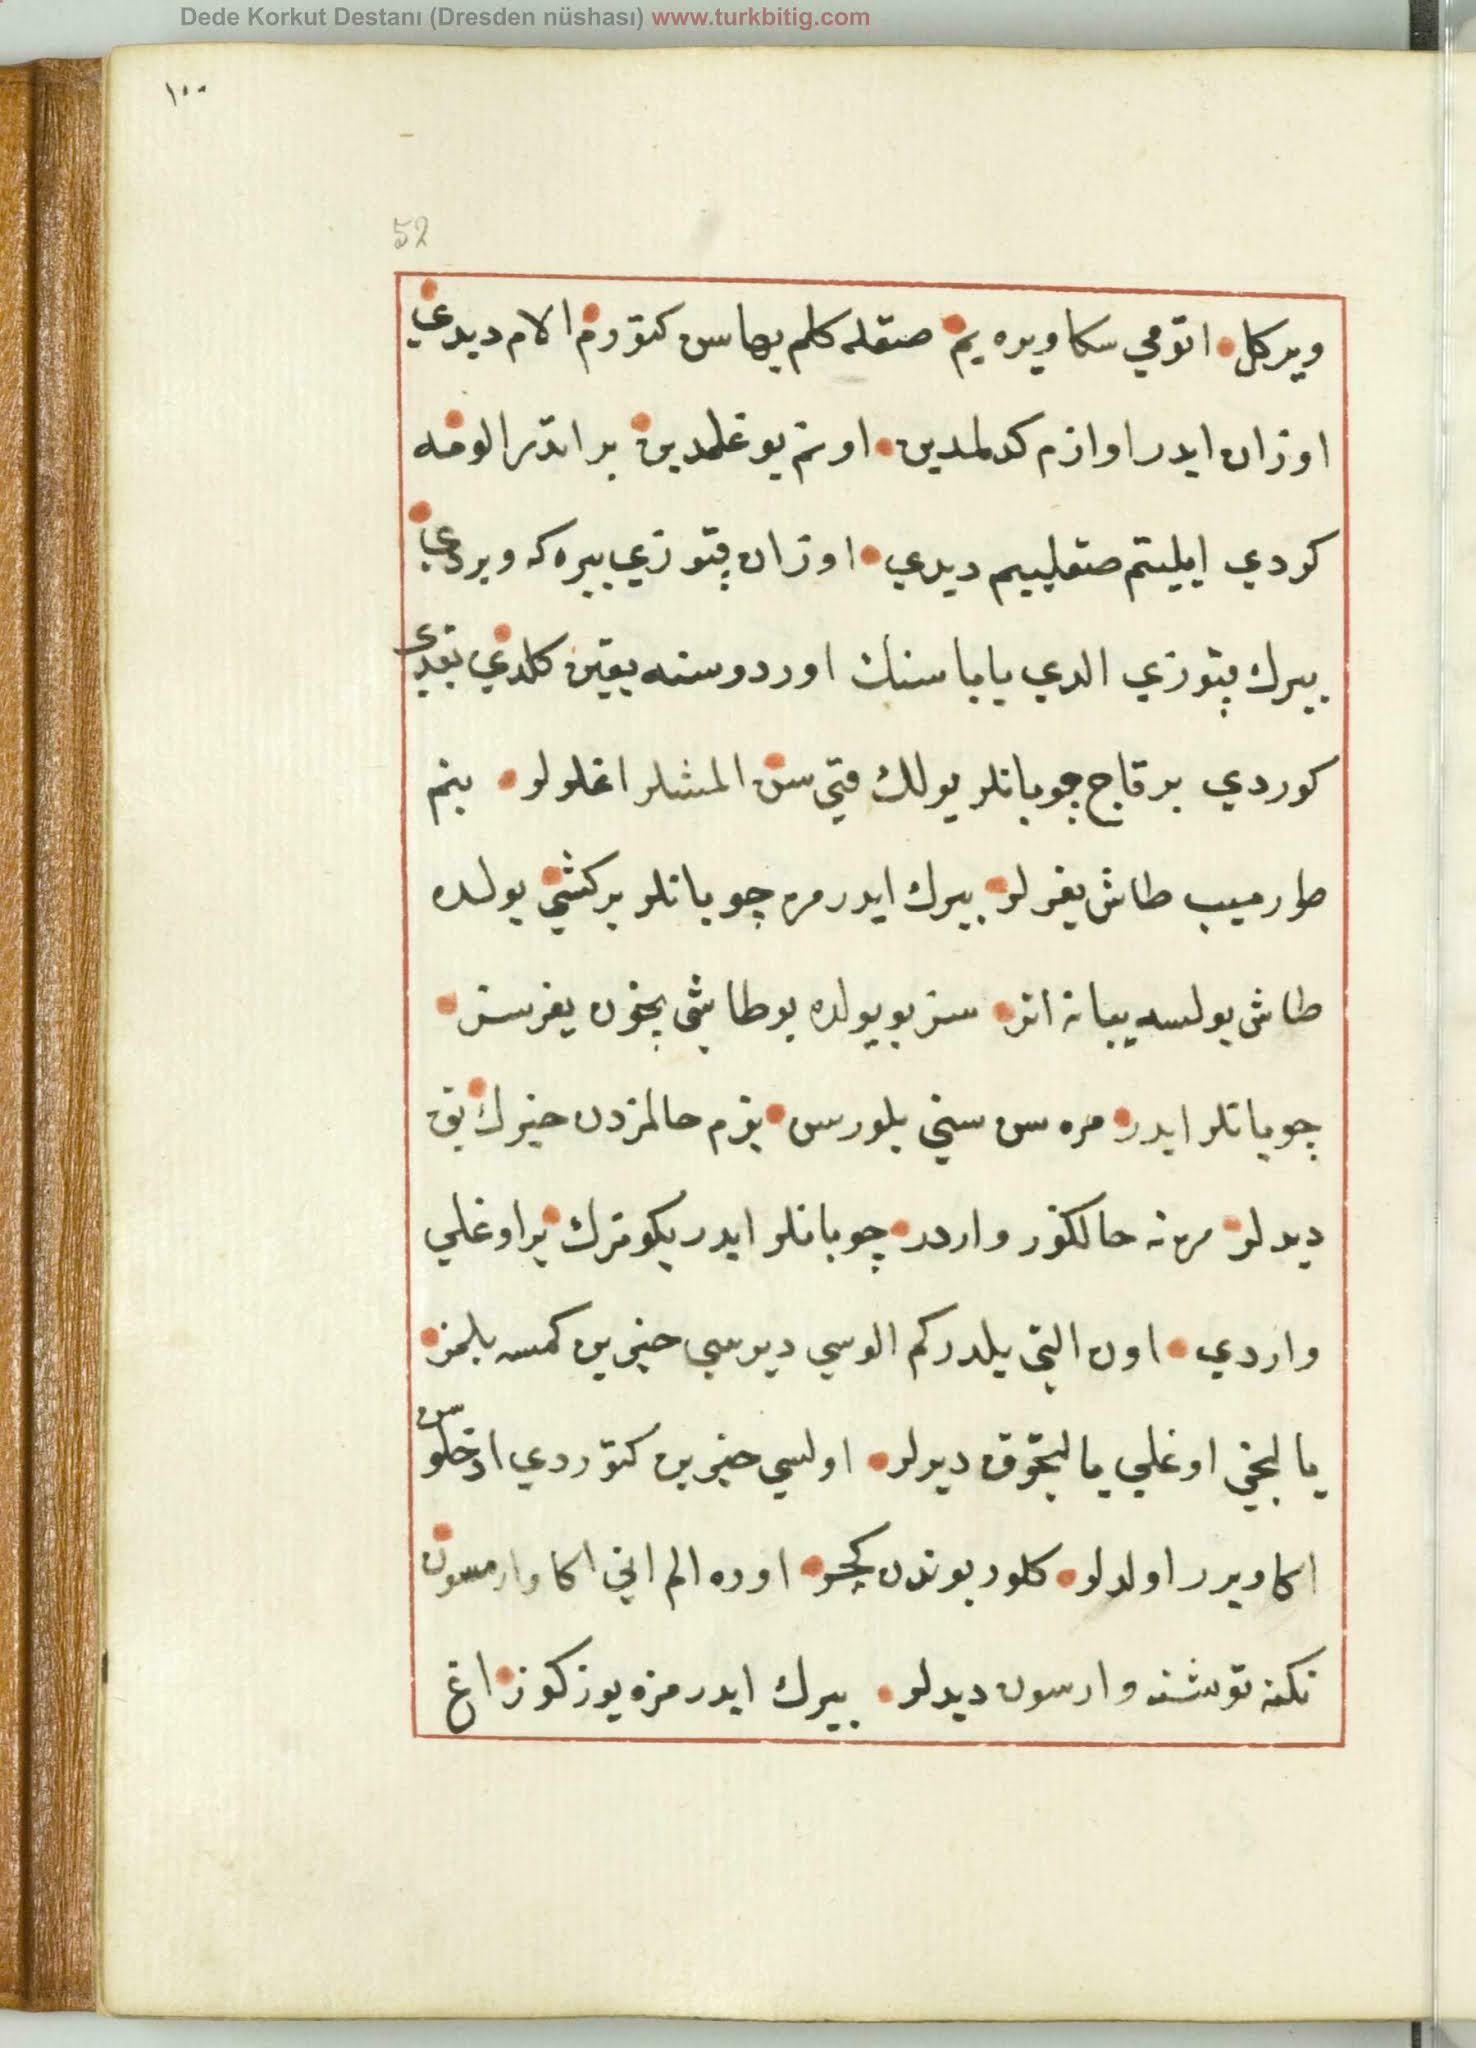 Dede Korkut Destanı (Dresden nüshası) www.turkbitig.com
١٠٠
52
ويركل اتومي سكا ويره يم صقله كلم بهاسن كتورم الام ديدي
اوزان ايدر اوازم كدلمدين اونم يوغلمدين بر اتدر الومه
كردي ايليتم صقلييم ديدي اوزان قپوزي بيره كه ويردي
بيرك قپوزي الدي باباسنك اوردوسنه يقين كلدي بقدي
كوردي بر قاج چوبانلر يولك قتي سن المشلر اغلرلر بنم
طارميب طاش يغرلر بيرك ايدر مره چوبانلر بر كشي يولده
طاش بولسه يبانه اتر سز بو يولده بو طاشي نچون يغرسز
چوبانلر ايدر مره سن سني بلورسن بزم حالمزدن خبرك يق
ديدلر مره نه حالكز واردر چوبانلر ايدر بكومزك بر اوغلي
واردي اون التي يلدركم الوسي ديرسي خبرين كمسه بلمز
يالنجي اوغلي يالنجوق ديرلر اولسي خبرين كتوردي ادخلوسن
اكا ويرر اولدلر كلور بوندن كچر اوره الم اني اكا وارمسون
تكنه توشنه وارسون ديدلر بيرك ايدر مره يوزكوز اغ